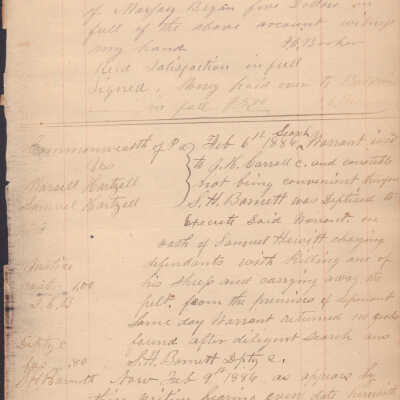 of Margary Bryan five Dollars in
full of the above account witness
my hand
Recd Satisfaction in full
Signed. Mony paid over to
in full
Commonwealth of Pa } Feb 6th 1886 Search Warrant issd
vs to J. K. Carroll c. and constable
Hartzell not being convenient
Samuel Hartzell S. H. Barnett was Deptised to
Execute Said Warrant on
oath of Samuel Hewitt charging
Justice defendants with Killing one of
cost 1.00 his sheep and carrying away the
pelt from the premises of
same day Warrant returned no goods
Dpty c found after diligent search ans
fees .80 S. H. Barnett Dpty c.
S H Barnett Now Feb 9th 1886 as appears by
bearing even date herewith